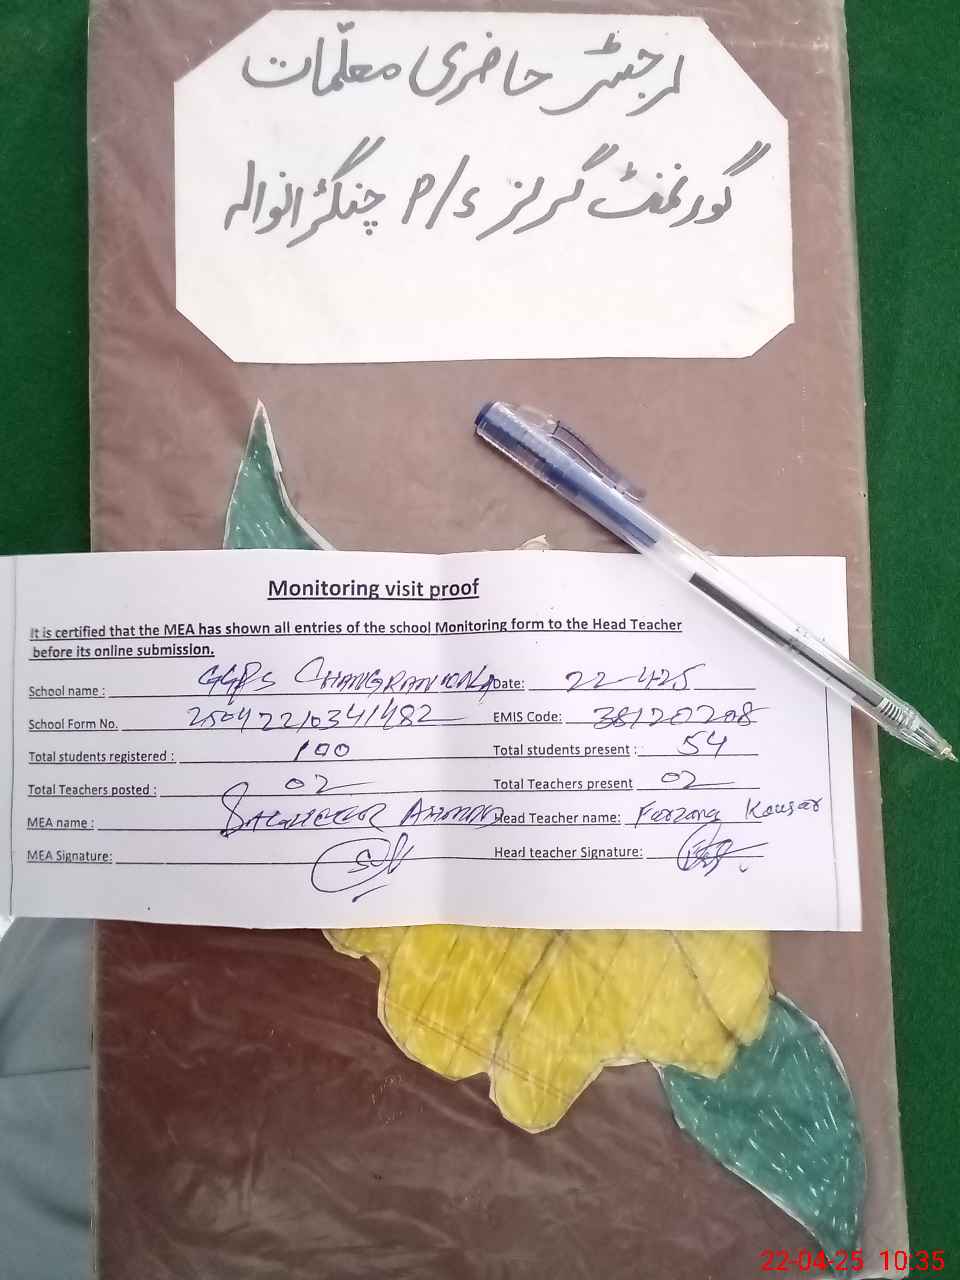 رجسٹر حاضری معلّمات
گورنمنٹ گرلز P/S چنگڑانوالہ
Monitoring visit proof
It is certified that the MEA has shown all entries of the school Monitoring form to the Head Teacher
before its online submission.
School name : GGPS CHANGRANWALA Date: 22-4-25
School Form No. 25042210341482 EMIS Code: 38120208
Total students registered : 100 Total students present : 54
Total Teachers posted : 02 Total Teachers present 02
MEA name : AHMAD Head Teacher name: Farzana Kousar
MEA Signature: Head teacher Signature:
22-04-25 10:35